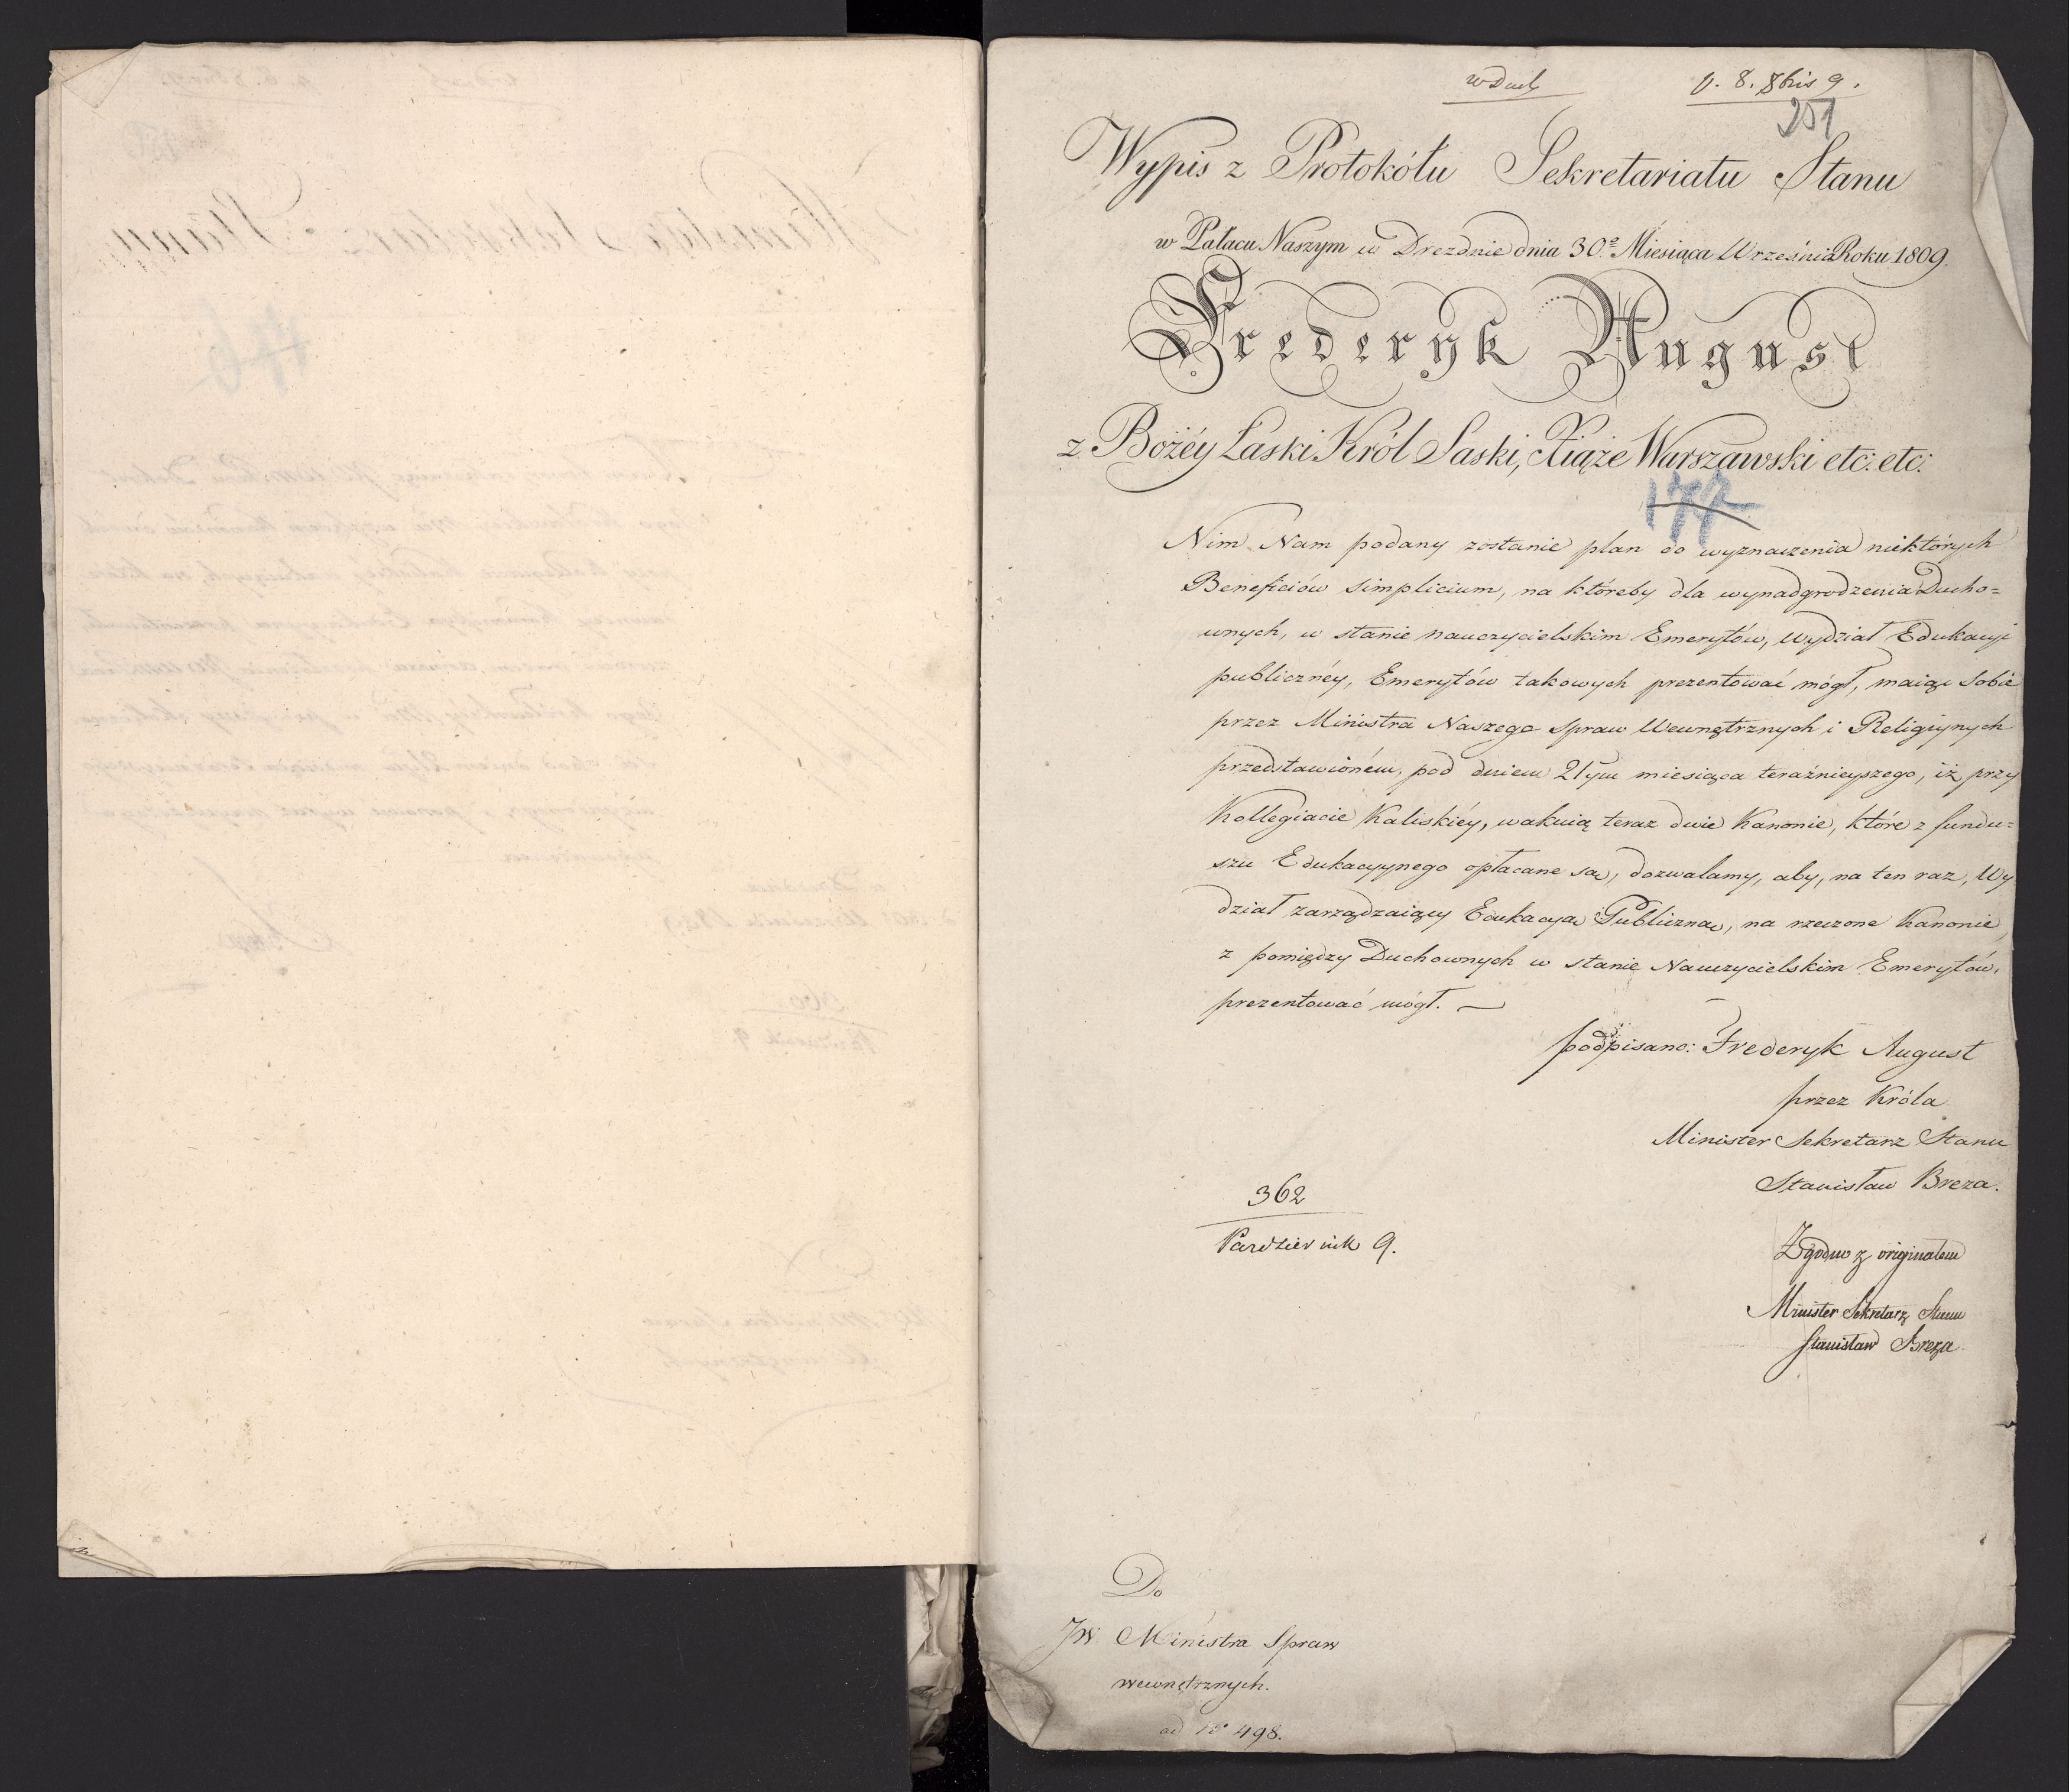 p. 8. 8bris 9.
251
Wypis z Protokółu Sekretariatu Stanu
w Pałacu Naszym w Dreznie dnia 30º Miesiąca Września Roku 1809.
Fryderyk August
z Bożéy Łaski Król Saski, Xiąże Warszawski etc: etc:
177
Nim Nam podany zostanie plan do wyznaczenia niektórych
Beneficiów simplicium, na któreby dla wynadgrodzenia Ducho=
wnych, w stanie nauczycielskim Emerytów, Wydział Edukacyi
publicznéy, Emerytów takowych prezentować mógł, maiąc sobie
przez Ministra Naszego Spraw Wewnętrznych i Religiynych
przedstawionem, pod dniem 21ym miesiąca teraźnieyszego, iż przy
Kollegiacie Kaliskiéy, wakuią teraz dwie Kanonie, które z fundu=
szu Edukacyynego opłacane są, dozwalamy, aby, na ten raz, Wy
dział zarządzaiący Edukacyą Publiczną, na rzeczone Kanonie,
z pomiędzy Duchownych w stanie Nauczycielskim Emerytów,
prezentować mógł. —
podpisano: Frederyk August
przez Króla
Minister Sekretarz Stanu
Stanisław Breza.
362
Pazdziernik 9.
Zgodno z originałem
Minister Sekretarz Stanu
Stanisław Breza
Do
JW. Ministra Spraw
wewnętrznych.
ad Nº 498.